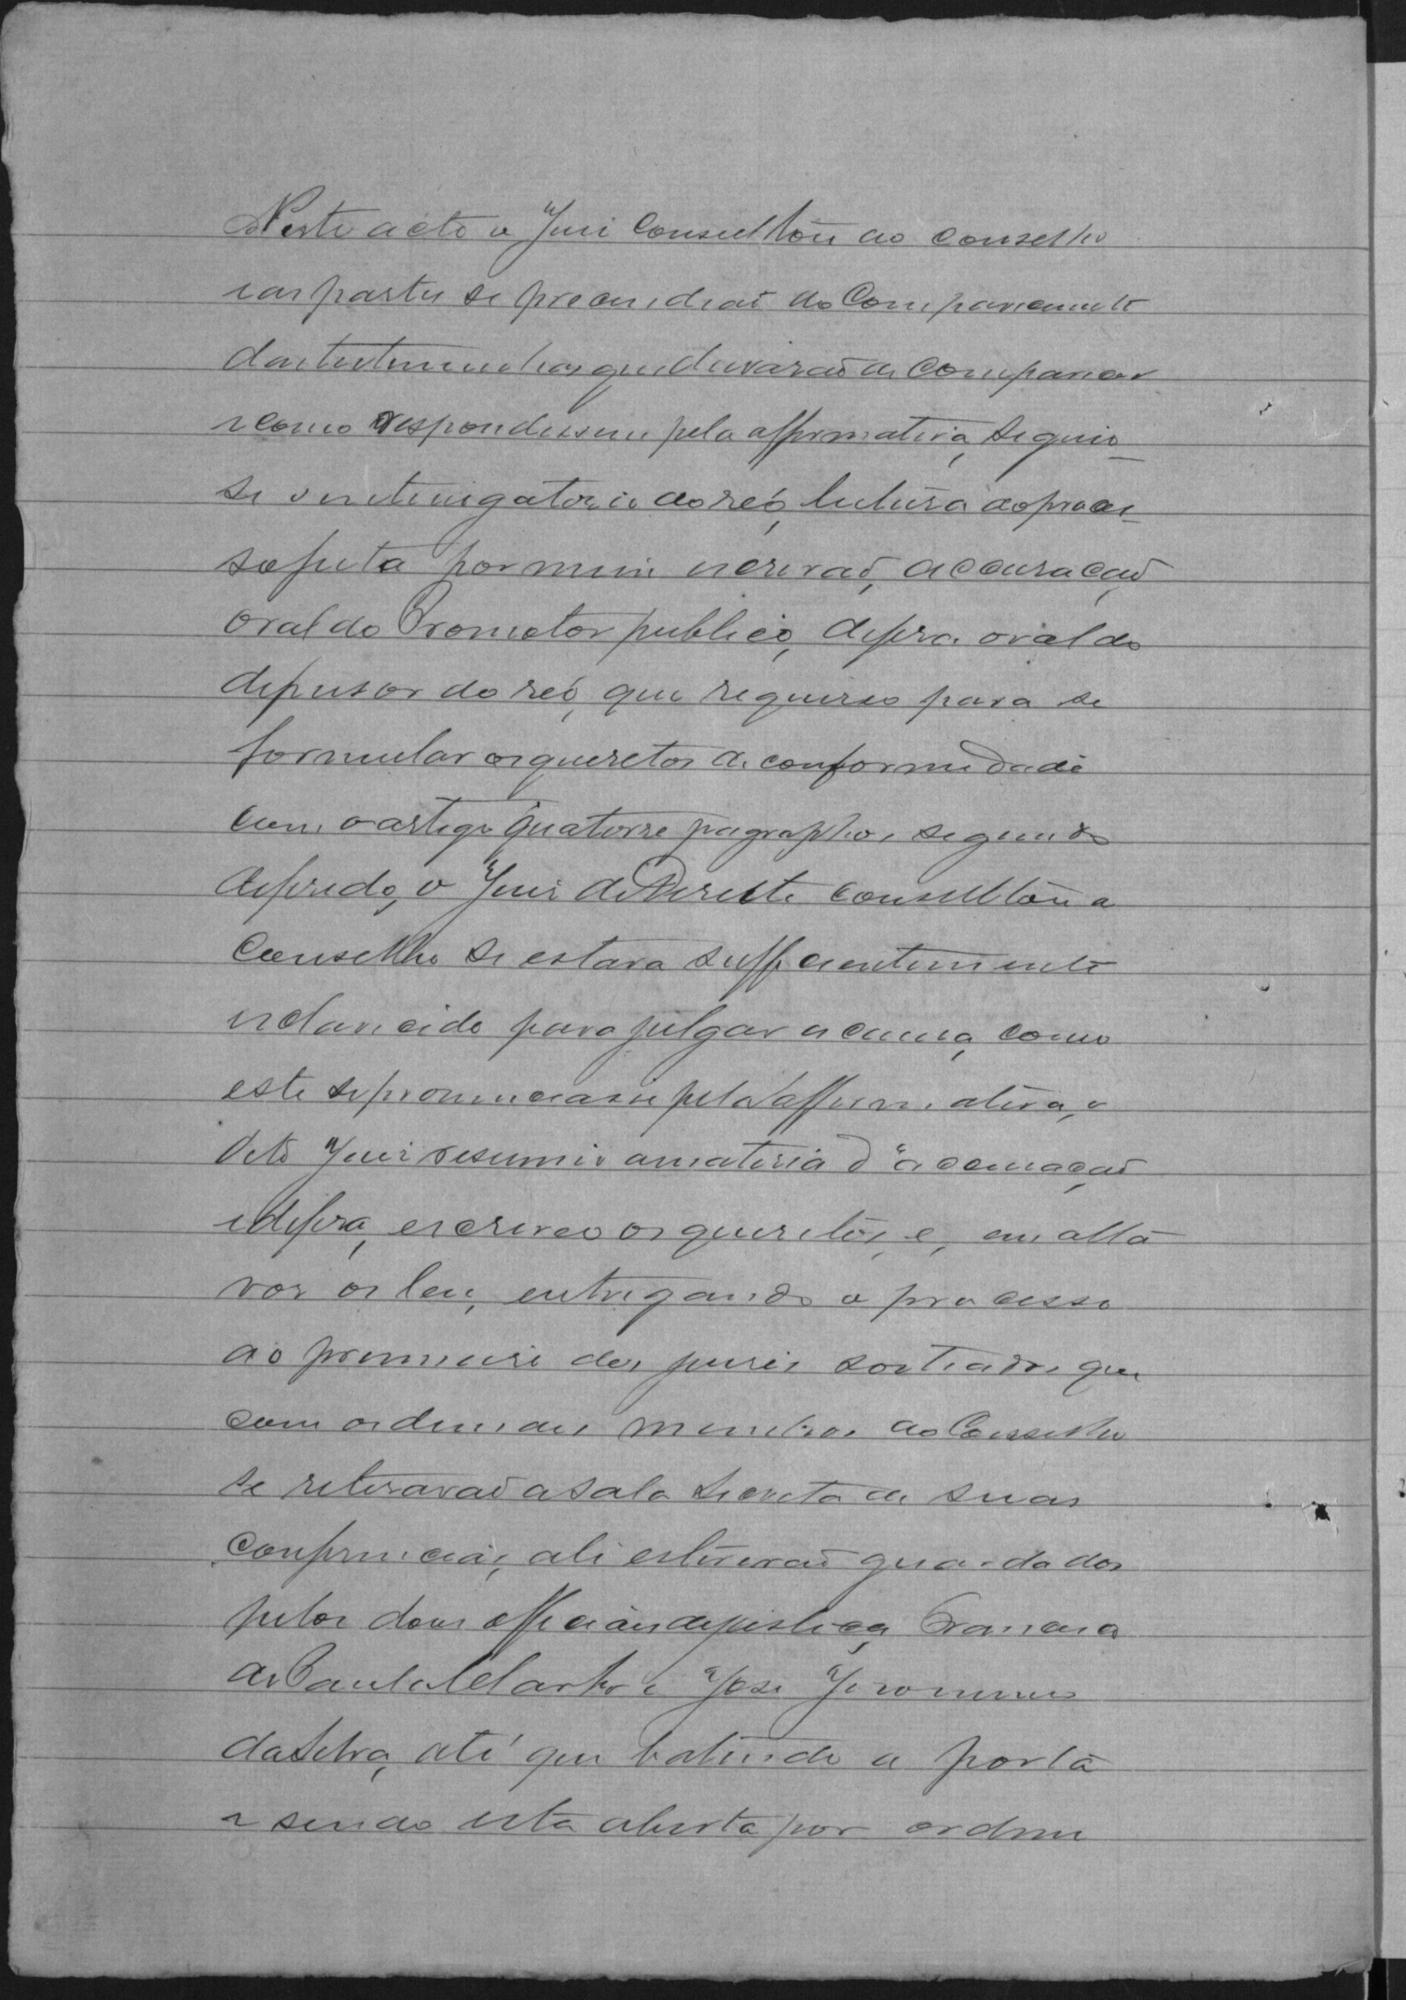 Neste acto o Juiz consultou ao conselho
e as partes se precindião do comparecimento
das testemunhas que deixarão de comparecer
e como respondessem pela affirmativa, seguio-
se o interrogatorio do réo, leitura do proces-
so feita por mim escrivão, accusação
oral do Promotor publico, defesa oral do
defensor do réo, que requereo para se
formular os quesitos de conformidade
com o artigo quatorze paragrapho segundo
deferido, o Juiz de Direito consultou a
conselho se estava sufficientemente
esclarecido para julgar a causa, como
este se pronunciasse pela affirmativa, o
dito Juiz resumio a materia d'accusação
e defesa, escreveo os quesitos, e, em alta
voz os leu, entregando o processo
ao primeiro dos juizes sorteados que
com os demais membros do Conselho
se retirarão a sala secreta de suas
conferencias, ali estiverão guardados
pelos dous officiaes de justiça, Francisco
de Paula e José Jeronimo
da Silva, até que batendo a porta
e sendo esta aberta por ordem